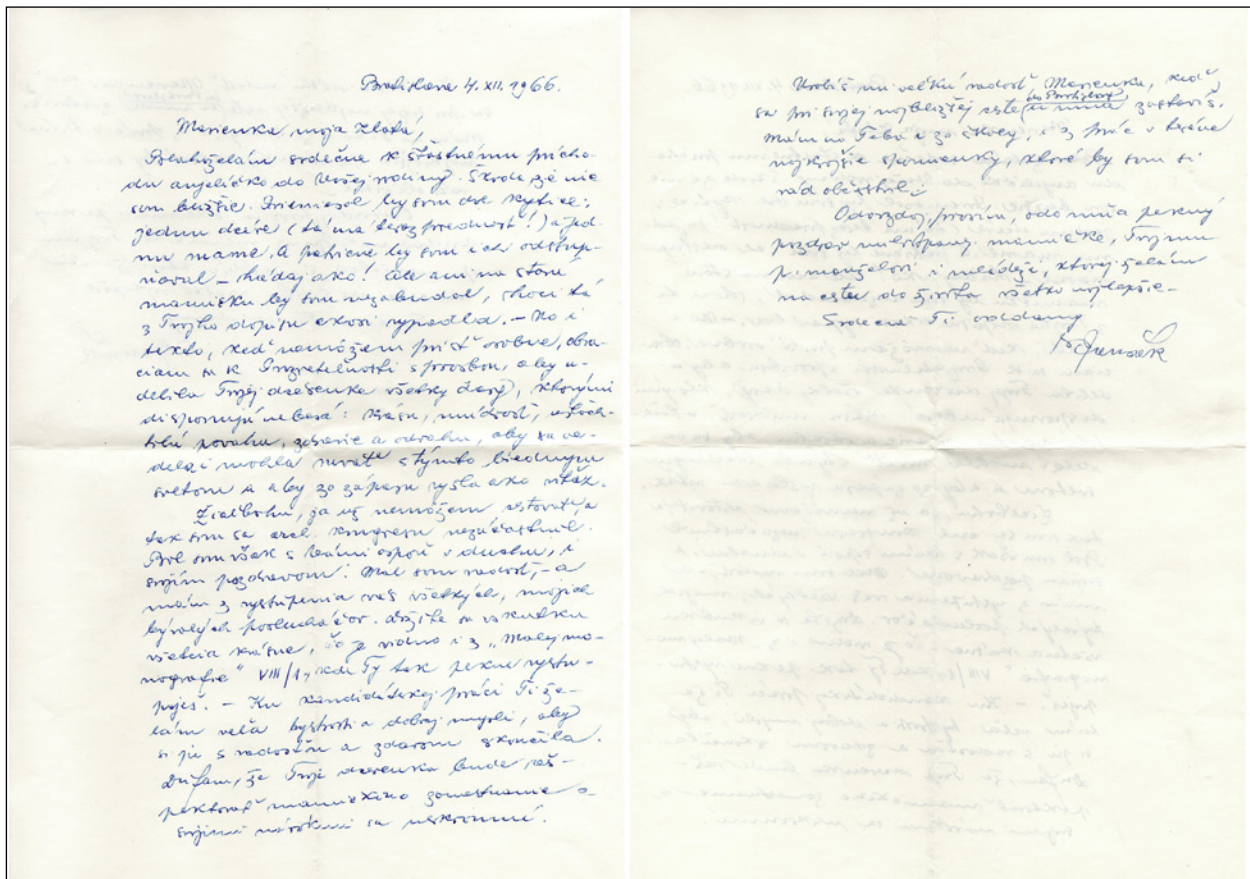 Bratislava 4. XII. 1966.
Marienka moja zlatá,
Blahoželám srdečne k šťastnému prícho-
du anjelička do Vašej rodiny. Škoda, že nie
som bližšie. Priniesol by som dve kytice:
jednu dcére (tá má teraz prednosť!) a jed-
nu mame. A patrične by som ich odstup-
ňoval – hádaj ako! Ale ani na starú
mamičku by som nezabudol, hoci tá
z Tvojho dopisu akosi vypadla. – No i
takto, keď nemôžem prísť osobne, obra-
ciam sa k Prozreteľnosti s prosbou, aby u-
delila Tvojej dcérenke všetky dary, ktorými
disponujú nebesá: krásu, múdrosť, ušľach-
tilú povahu, zdravie a odvahu, aby sa ve-
dela i mohla rvať s týmto biednym
svetom a aby zo zápasu vyšla ako víťaz.
Žiaľbohu, ja už nemôžem cestovať, a
tak som sa arch. kongresu nezúčastnil.
Bol som však s Vami aspoň v duchu, i
svojím pozdravom. Mal som radosť, – a
mám z vystúpenia vás všetkých, mojich
bývalých poslucháčov. Držíte sa vskutku
všetci krásne, čo je vidno i z „Malej mo-
nografie" VIII/1, kde Ty tak pekne vystu-
puješ. – Ku kandidátskej práci Ti že-
lám veľa bystrosti a dobrej mysli, aby
si ju s radosťou a zdarom skončila.
Dúfam, že Tvoja dcérenka bude reš-
pektovať mamičkino zamestnanie a
svojimi nárokmi sa uskromní.
Urobíš mi veľkú radosť, Marienka, keď
sa pri svojej najbližšej ceste do Bratislavy u mňa zastavíš.
Mám na Teba i zo školy, i z prác v teréne
najkrajšie spomienky, ktoré by som si
rád občerstvil.
Odovzdaj, prosím, odo mňa pekný
pozdrav milostpanej mamičke, Tvojmu
p. manželovi i mládeži, ktorej želám
na cestu do života všetko najlepšie.
Srdečne Ti oddaný
Janšák